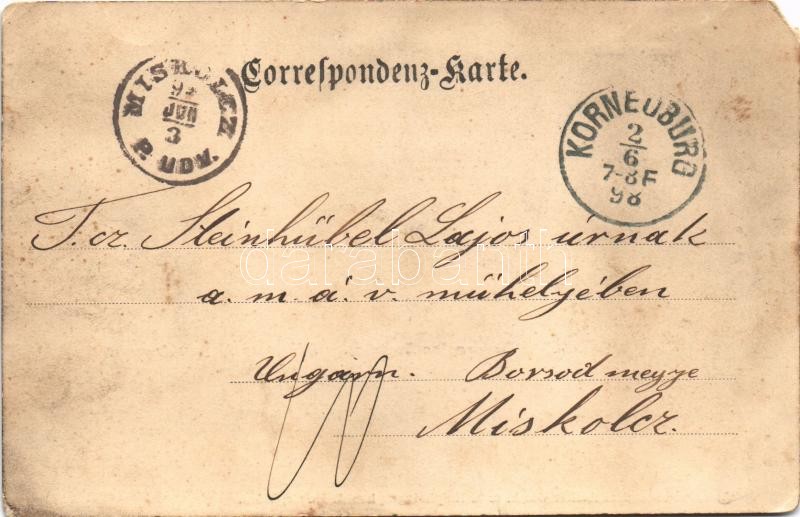 Correspondenz-Karte.
MISKOLCZ
JUN
3
P. UDV.
KORNEUBURG
2/6
7-8F
98
T. cz. Steinhübel Lajos úrnak
a. m. á. v. műhelyében
Ungarn. Borsod megye
Miskolcz.
darabanth